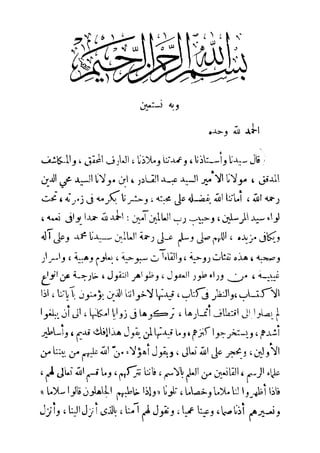 بسم الله الرحمن الرحيم
وبه نستعين
الحمد لله وحده
قال سيدنا وأستاذنا، وعمدتنا وملاذنا، العارف المحقق، والمكاشف
المدقق، مولانا الأمير السيد عبد القادر، ابن مولانا السيد محي الدين
رحمه الله، أماتنا الله بفضله على محبته، وحشرنا بكرمه فى زمرته، تحت
لواء سيد المرسلين، وحبيب رب العالمين آمين: الحمد لله حمدا يوافى نعمه،
ويكافى مزيده، اللهم صلى وسلم على رحمة العالمين سيدنا محمد وعلى آله
وصحبه، هذه نفثات روحية، والقاءات سبوحية، بعلوم وهبية، واسرار
غيبية، من وراء طور العقول، وظواهر النقول، خارجة عن انواع
الاكتساب، والنظر فى كتاب، قيدتها لاخواننا الذين يؤمنون بآياتنا، اذا
لم يصلوا الى اقتطاف أثمارها، تركوها فى زوايا امكانها، الى أن يبلغوا
أشدهم، ويستخرجوا كنزهم، وما قيدتها لمن يقول هذا إفك قديم، وأساطير
الأولين، ويحجر على الله تعالى، ويقول أهؤلاء منّ الله عليهم من بيننا من
علماء الرسم، القانعين من العلم بالاسم، فاننا نتركهم، وما قسم الله تعالى لهم،
فاذا أظهروا لنا ملاما وخصاما، تلونا «واذا خاطبهم الجاهلون قالوا سلاما»
ونعيرهم أذنا صماء، وعينا عميا، ونقول لهم آمنا، بالذى أنزل الينا، وأنزل